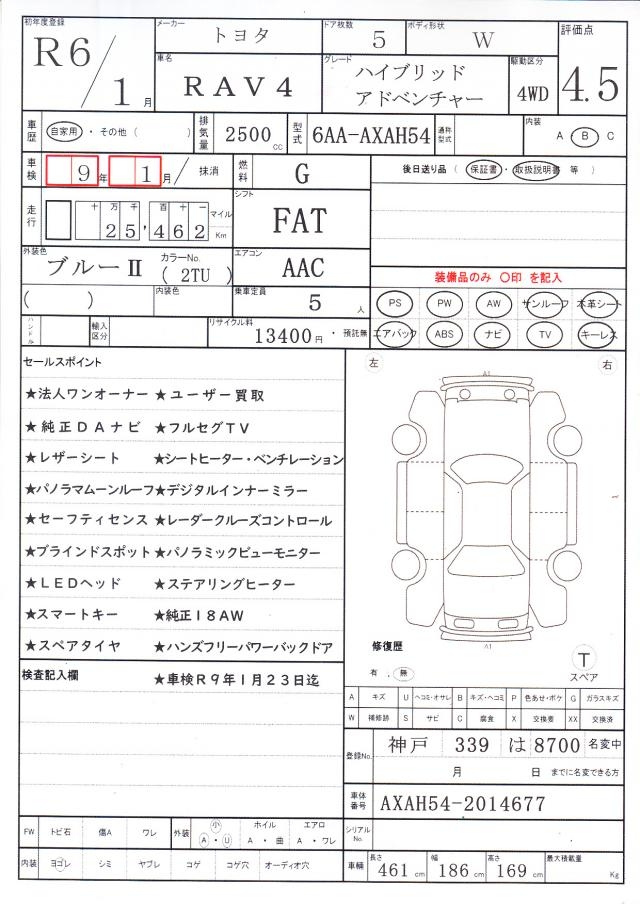 初年度登録 メーカー トヨタ ドア枚数 5 ボディ形状 W 評価点
R6/1月 車名 RAV4 グレード ハイブリッド アドベンチャー 駆動区分 4WD 4.5
車歴 自家用・その他( ) 排気量 2500cc 型式 6AA-AXAH54 通称型式 内装 A・B・C
車検 9年 1月/ 抹消 燃料 G 後日送り品(保証書・取扱説明書 等)
走行 十万千百十 25,462 マイル Km シフト FAT
外装色 ブルーⅡ カラーNo. (2TU) エアコン AAC 装備品のみ 〇印 を記入
( ) 内装色 乗車定員 5人 PS PW AW サンルーフ 本革シート
ハンドル 輸入区分 リサイクル料 13400円・預託無 エアバック ABS ナビ TV キーレス
セールスポイント 左 右
A1
★法人ワンオーナー ★ユーザー買取
★純正DAナビ ★フルセグTV
★レザーシート ★シートヒーター・ベンチレーション
★パノラマムーンルーフ★デジタルインナーミラー
★セーフティセンス ★レーダークルーズコントロール
★ブラインドスポット★パノラミックビューモニター
★LEDヘッド ★ステアリングヒーター
★スマートキー ★純正18AW
★スペアタイヤ ★ハンズフリーパワーバックドア
A1
修復歴 T
有 . 無 スペア
検査記入欄 ★車検R9年1月23日迄
A キズ U ヘコミ・オサレ B キズ・ヘコミ P 色あせ・ボケ G ガラスキズ
W 補修跡 S サビ C 腐食 X 交換要 XX 交換済
登録No. 神戸 339 は 8700 名変中
月 日 までに名変できる方
車体番号 AXAH54-2014677
シリアルNo.
FW トビ石 傷A ワレ 外装 小 A・U ホイル A・曲 エアロ A・ワレ
内装 ヨゴレ シミ ヤブレ コゲ コゲ穴 オーディオ穴
車輌 長さ 461cm 幅 186cm 高さ 169cm 最大積載量 Kg